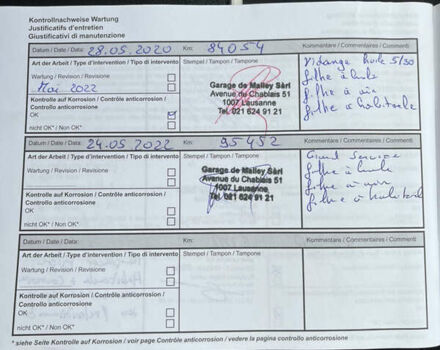 Kontrollnachweise Wartung
Justificatifs d'entretien
Giustificativi di manutenzione
Datum / Date / Data: 28.05.2020 Km: 84054 Kommentare / Commentaires / Commenti
Art der Arbeit / Type d'intervention / Tipo di intervento Stempel / Tampon / Tampone Vidange huile 5/30
Wartung / Revision / Revisione filtre à huile
Mai 2022 Garage de Malley Sàrl filtre à air
Kontrolle auf Korrosion / Contrôle anticorrosion / Avenue du Chablais 51 filtre à habitacle
Controllo anticorrosione 1007 Lausanne
OK Tél. 021 624 91 21
nicht OK* / Non OK*:
Datum / Date / Data: 24.05.2022 Km: 95452 Kommentare / Commentaires / Commenti
Art der Arbeit / Type d'intervention / Tipo di intervento Stempel / Tampon / Tampone Grand Service
Wartung / Revision / Revisione Garage de Malley Sàrl filtre à huile
Avenue du Chablais 51 filtre à air
Kontrolle auf Korrosion / Contrôle anticorrosion / 1007 Lausanne filtre à habitacle
Controllo anticorrosione Tél. 021 624 91 21
OK
nicht OK* / Non OK*:
Datum / Date / Data: Km: Kommentare / Commentaires / Commenti
Art der Arbeit / Type d'intervention / Tipo di intervento Stempel / Tampon / Tampone
Wartung / Revision / Revisione
Kontrolle auf Korrosion / Contrôle anticorrosion /
Controllo anticorrosione
OK
nicht OK* / Non OK*:
* siehe Seite Kontrolle auf Korrosion / voir page Contrôle anticorrosion / vedere la pagina controllo anticorrosione